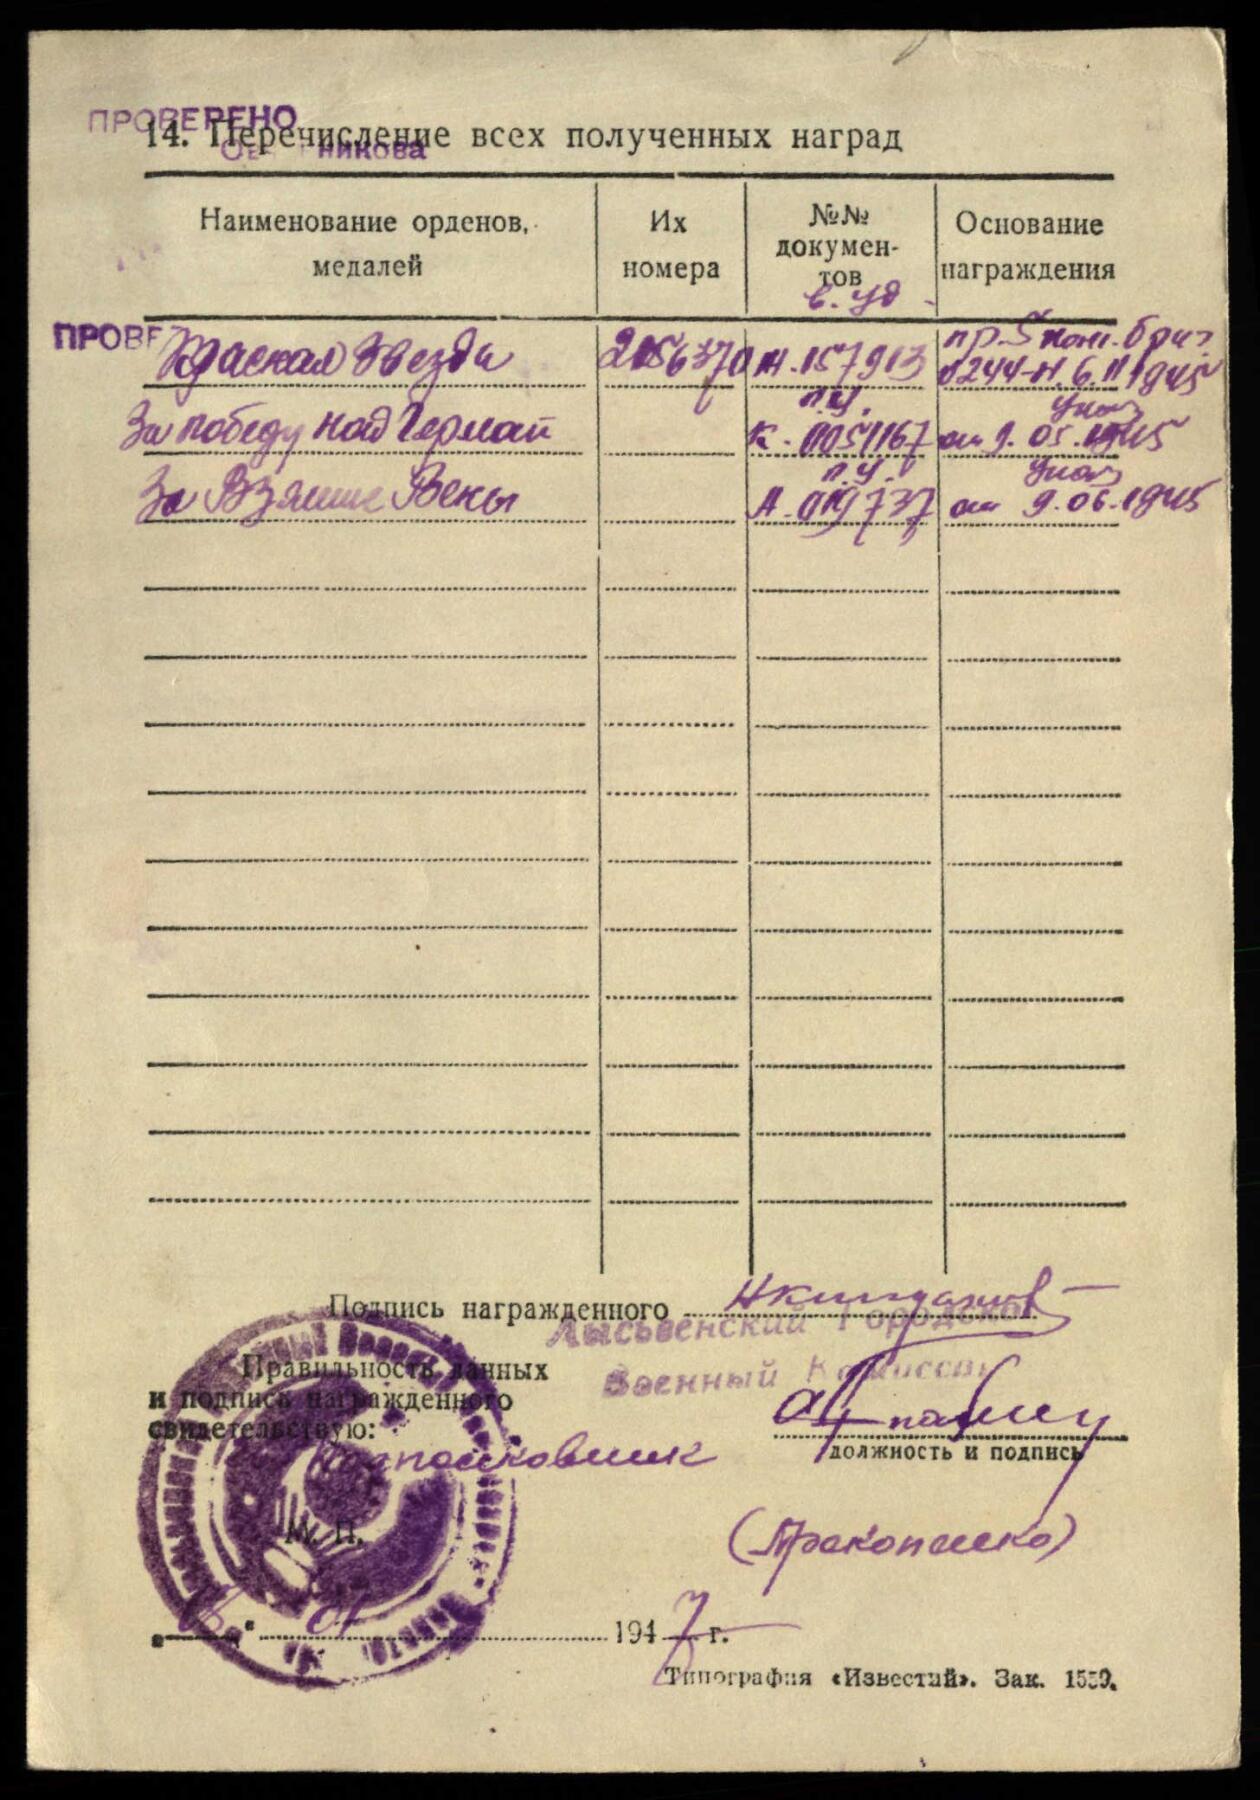 ПРОВЕРЕНО
14. Перечисление всех полученных наград
Наименование орденов, медалей
Их номера
№№ документов
в. уд.
Основание награждения
ПРОВЕ
Красная Звезда 2156370 Н. 157913 пр. 5 . бриг. 0244-Н. 6. 11 1945
За победу над Герман п.у. К. 0051167 Указ от 9.05.1945
За Взятие Вены п.у. А. 019737 Указ от 9.06.1945
Подпись награжденного
Лысьвенский Городской
Военный Комиссар
Правильность данных
и подпись награжденного
свидетельствую:
Подполковник
должность и подпись
М. П.
(Прокопенко)
" 01 1947 г.
Типография «Известий». Зак. 1550.